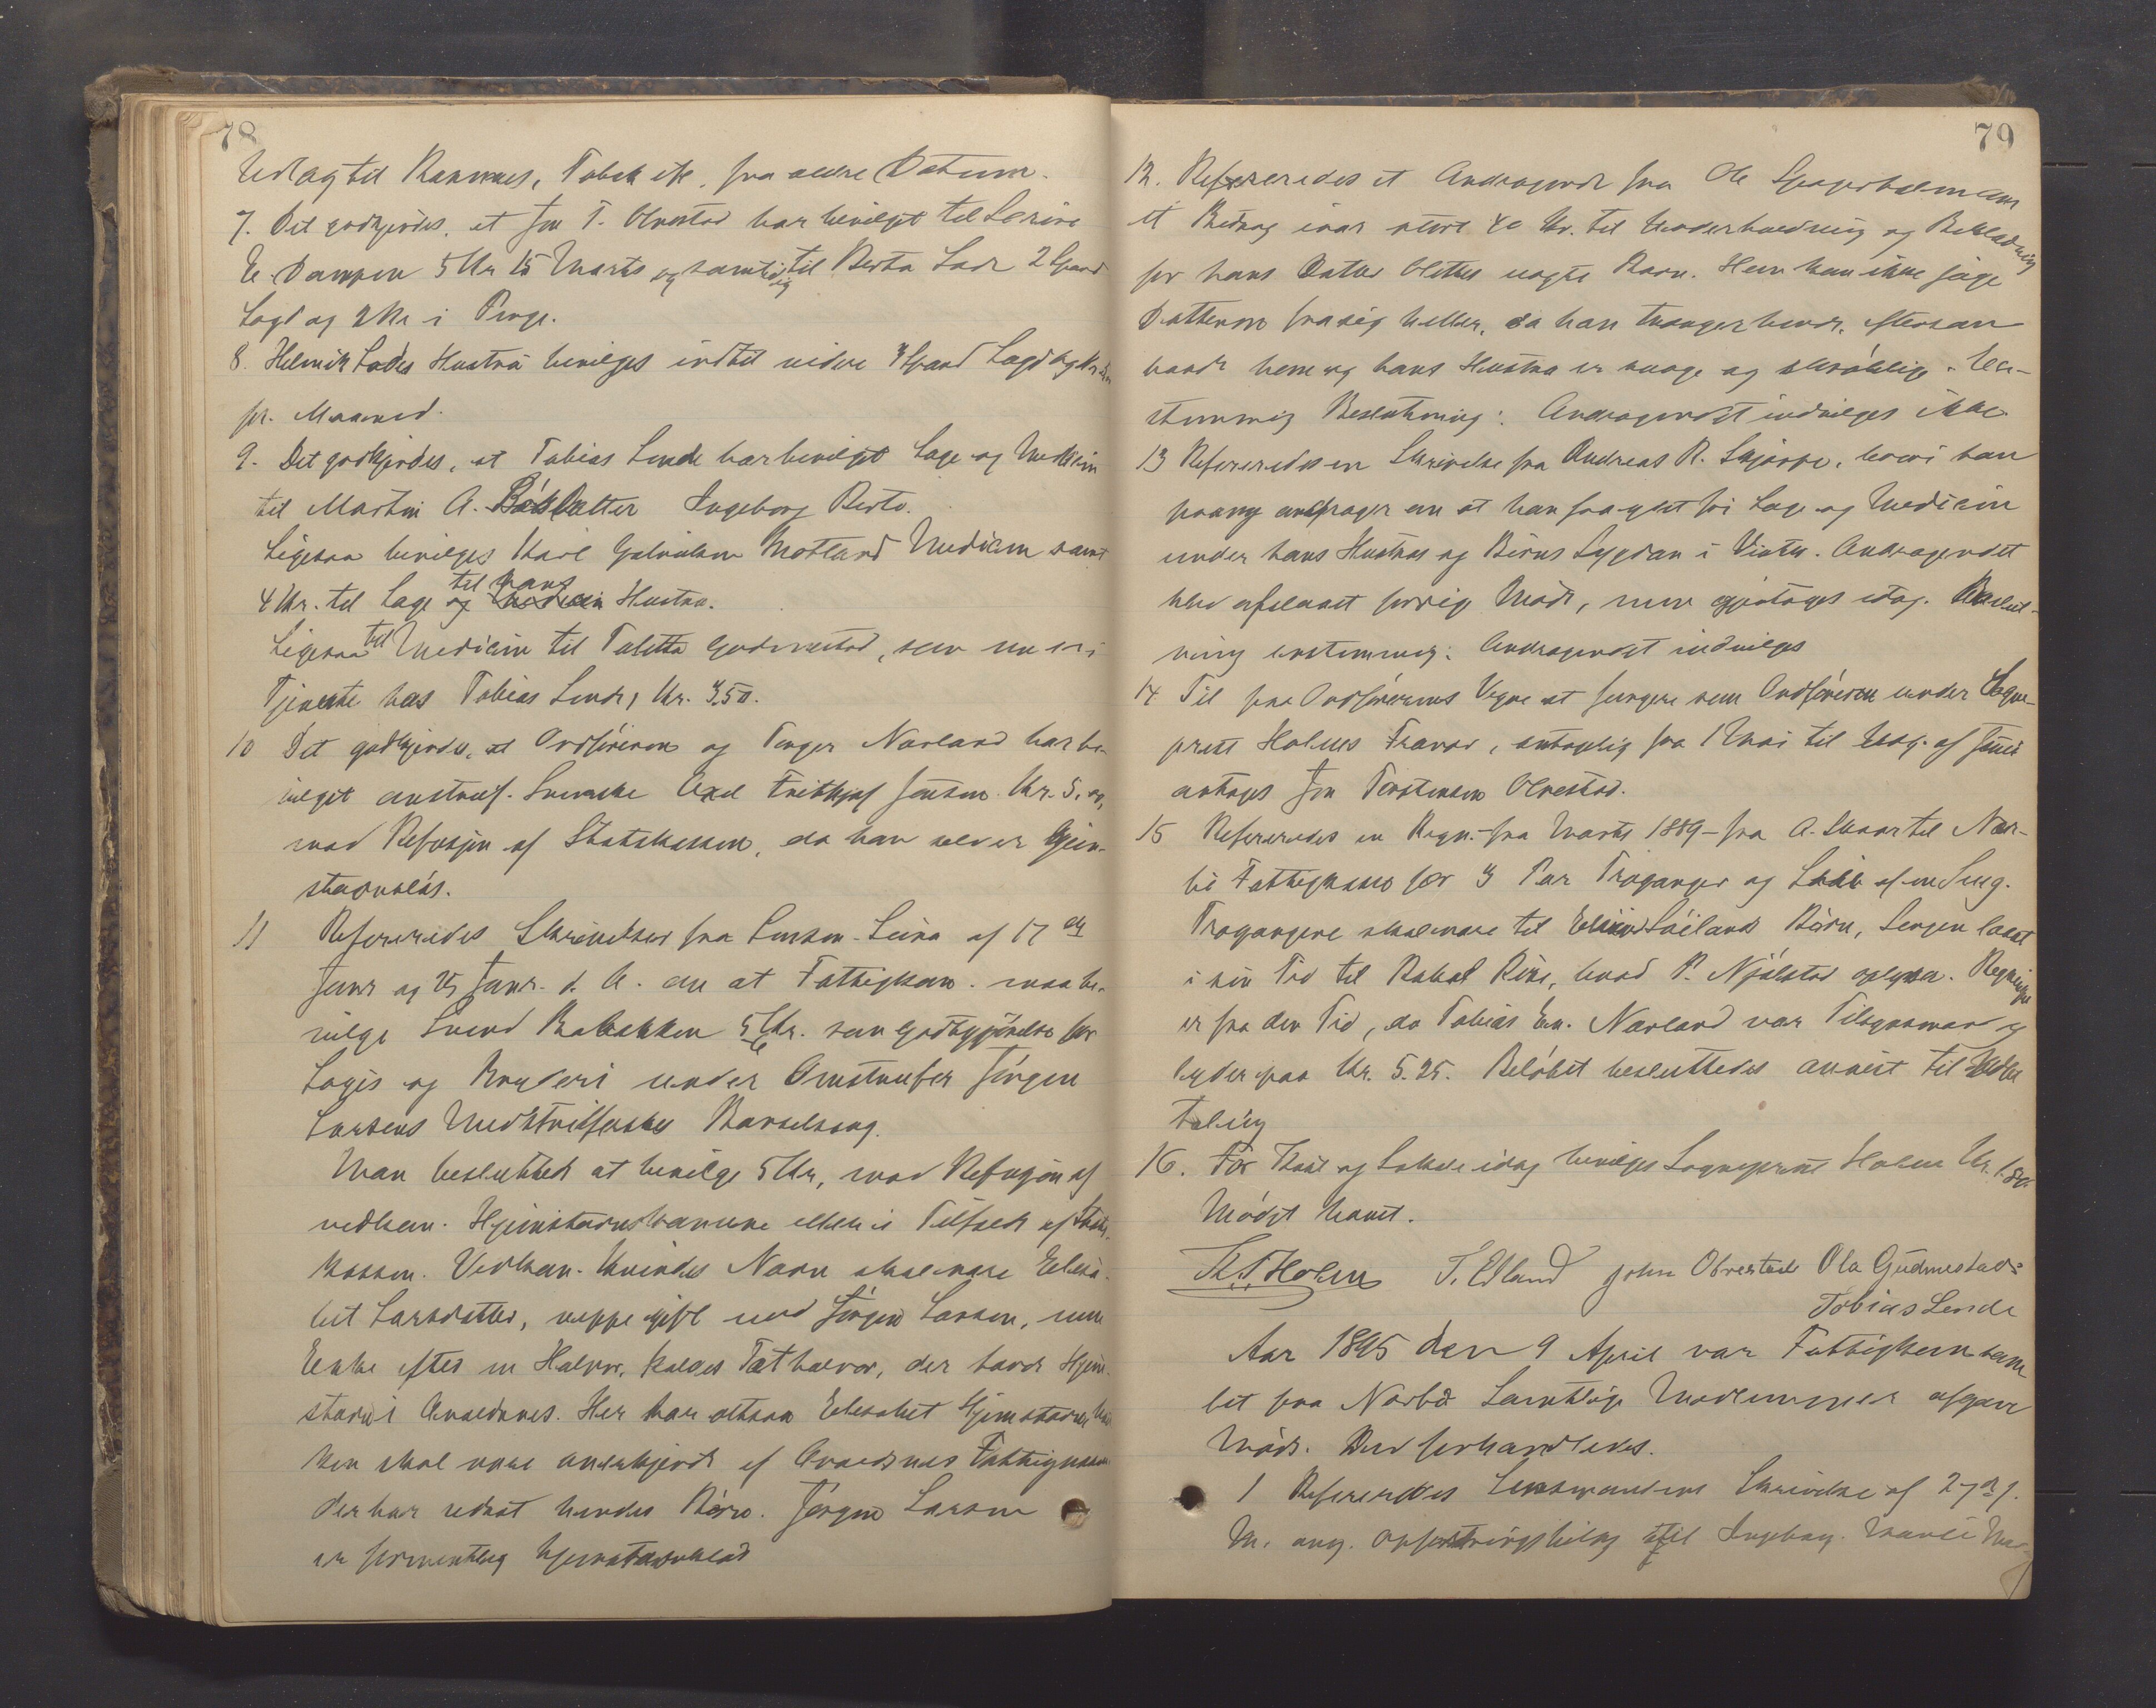 78
Udlag til Kammer, Tobak etc. fra ældre Datum.
7. Det godkjendes, at Jon T. Obrestad har bevilget til Serine
E. Dampen 5 Kr 15 Marts og samtidig til Berta Lode 2 Spand
Bygl og 2 Kr i Penge.
8. Helmik Lodes Hustru bevilges indtil videre Spand
pr. Maaned.
9. Det godkjendes, at Tobias Lende har bevilget Læge og Medicin
til Martin A. Datter Ingeborg Berta.
Ligesaa bevilges Karl Motland Medicin samt
4 Kr. til Læge til hans og Medicin Hustru.
Ligesaa til Medicin til Taletta Gudmestad, som nu er i
Tjeneste hos Tobias Lende, Kr. 3.50.
10 Det godkjendes, at Ordføreren og Torger Nærland har be-
vilget omstreif. Svenske Axel Frithjof Jensen Kr. 5,00,
mod Refusjon af Statskassen, da han selv er hjem-
stavnsløs.
11 Refereredes Skrivelser fra Lensm. Leira af 17de
Janr og 25 Janr. d. A. om at Fattigkom. maa be-
vilge Svend 5 Kr. som Godtgjørelse for
Logis og Bryderi under Omstreifer Jørgen
Larsens Medstreiferskes Barselseng.
Man besluttede at bevilge 5 Kr, mod Refusjon af
vedkom. Hjemstavnskommune eller i Tilfælde af Stats-
kassen. Vedkom. Kvindes Navn skal være Elisa-
bet Larsdatter, neppe gift med Jørgen Larsen, men
Enke efter en Halvor, kaldet Tæthalvor, der havde Hjem-
stavn i Avaldsnes. Her har altsaa Elisabet Hjemstavn
Hun skal være anerkjendt af Avaldsnes Fattigkom
der har redset hendes Børn. Jørgen Larsen
er formentlig hjemstavnsløs
79
12. Refereredes et Andragende fra Ole om
et Bidrag ivar stort 40 Kr. til Underholdning og Beklædning
for hans Datter Olettes uægte Barn. Han kan ikke jage
Datteren fra sig heller, da han trænger hende, eftersom
baade han og hans Hustru er svage og skrøbelige. En-
stemmig Beslutning: Andragendet indvilges ikke.
13 Refereredes en Skrivelse fra Andreas R. Skjærpe, hvori han
paany andrager om at han faar fri Læge og Medicin
under hans Hustrus og Børns Sygdom i Vinter. Andragendet
blev afslaaet forrige Møde, men gjentages idag. Beslut-
ning enstemmig: Andragendet indvilges
14 Til paa Ordførerens Vegne at fungere som Ordfører under Sogne-
prest Holms Fravær, antagelig fra 1 Mai til Udg. af Juni
antages Jon Torstensen Obrestad.
15 Refereredes en Regn. fra Marts 1889 fra A. Skaar til Nær-
bø Fattigkasse for 3 Par Trøganger og af en Seng.
Trogangene skal være til Eivind Søilands Børn, Sengen laant
i sin Tid til Rakel Rise, hvad P. Njølstad oplyser. Regningen
er fra den Tid, da Tobias En. Nærland var Tilsynsmand og
lyder paa Kr. 5.25. Beløbet besluttedes anvist til Udbe
taling
16. For Hus og Lokale idag bevilges Sogneprest Holm Kr. 1.50.
Mødet hævet.
Th. S. Holm T. Edland John Obrestad Ola Gudmestad
Tobias Lende
Aar 1895 den 9 April var Fattigkom. sam
let paa Nærbø Samtlige Medlemmer afgav
Møde. Der forhandledes.
1 Refereredes Lensmandens Skrivelse af 27de f.
M. ang. Opfostringsbidrag til Ingeborg Marie